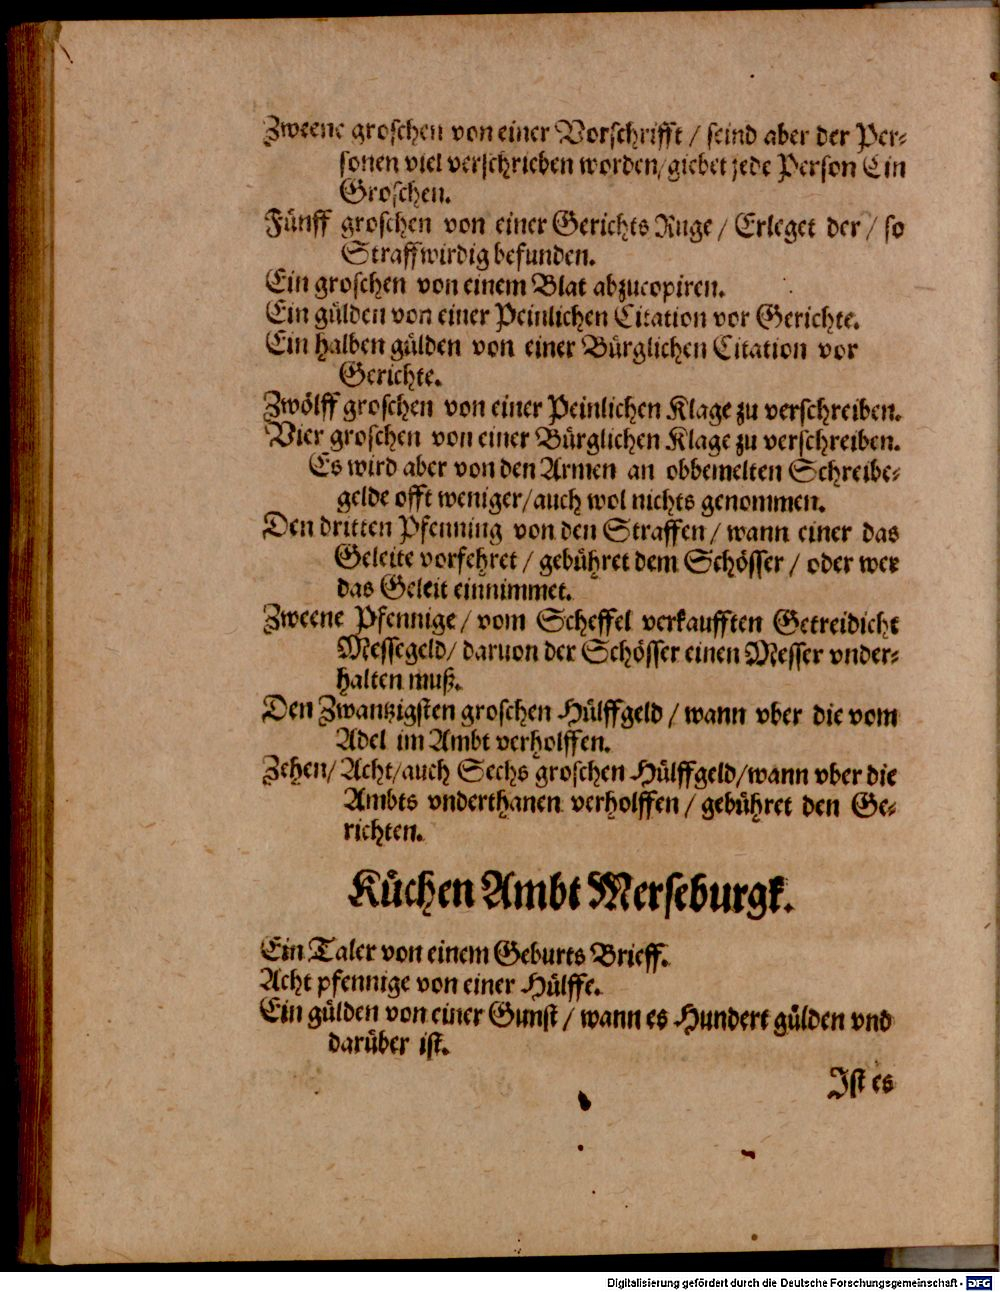 Zweene groschen von einer Vorschrifft / seind aber der Per-
sonen viel verschrieben worden / giebet jede Person Ein
Groschen.
Fünff groschen von einer Gerichts Ruge / Erleget der / so
Straffwirdig befunden.
Ein groschen von einem Blat abzucopiren.
Ein gülden von einer Peinlichen Citation vor Gerichte.
Ein halben gülden von einer Bürglichen Citation vor
Gerichte.
Zwölff groschen von einer Peinlichen Klage zu verschreiben.
Vier groschen von einer Bürglichen Klage zu verschreiben.
Es wird aber von den Armen an obbemelten Schreibe-
gelde offt weniger / auch wol nichts genommen.
Den dritten Pfenning von den Straffen / wann einer das
Geleite vorfehret / gebühret dem Schösser / oder wer
das Geleit einnimmet.
Zweene Pfennige / vom Scheffel verkaufften Getreidicht
Messegeld / daruon der Schösser einen Messer vnder-
halten muß.
Den Zwantzigsten groschen Hülffgeld / wann vber die vom
Adel im Ambt verholffen.
Zehen / Acht / auch Sechs groschen Hülffgeld / wann vber die
Ambts vnderthanen verholffen / gebühret den Ge-
richten.
Küchen Ambt Merseburgk.
Ein Taler von einem Geburts Brieff.
Acht pfennige von einer Hülffe.
Ein gülden von einer Gunst / wann es Hundert gülden vnd
darüber ist.
Ist es
Digitalisierung gefördert durch die Deutsche Forschungsgemeinschaft - DFG